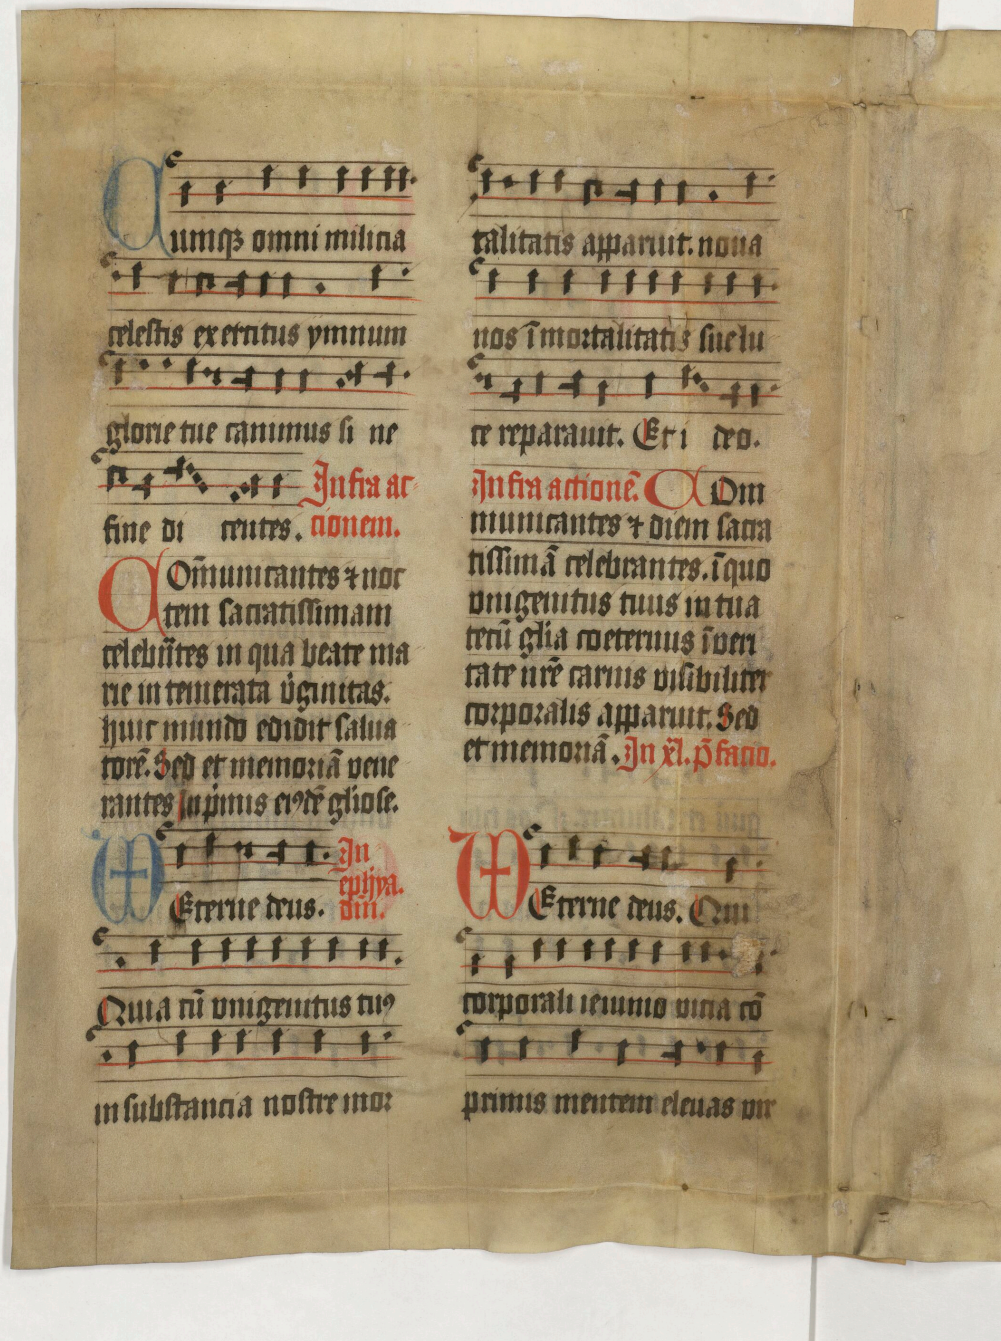 Cumqꝫ omni milicia
celestis exercitus ymnum
glorie tue canimus si ne
fine di centes. Infra ac
cionem.
Com̄unicantes ⁊ noc
tem sacratissimam
celebrā̄tes in qua beate ma
rie intemerata v̓ginitas.
huic mundo edidit salua
torē. Sed et memoriā vene
rantes Inp̓mis eiꝰdē gl̓iose.
Eterne deus. In
ephya.
dn̄i.
Quia cū vnigenitus tuꝰ
in substancia nostre mor
talitatis apparuit. noua
nos ī mortalitatis sue lu
ce reparauit. Et i deo.
Infra actionē. Com
municantes ⁊ diem sacra
tissimā celebrantes. ī quo
vnigenitus tuus in tua
tecū gl̓ia coeternus ī veri
tate nr̄e carnis visibiliter
corporalis apparuit. Sed
et memoriā. In xl. p̄facio.
Eterne deus. Qui
corporali ieiunio vicia cō
primis mentem eleuas vir